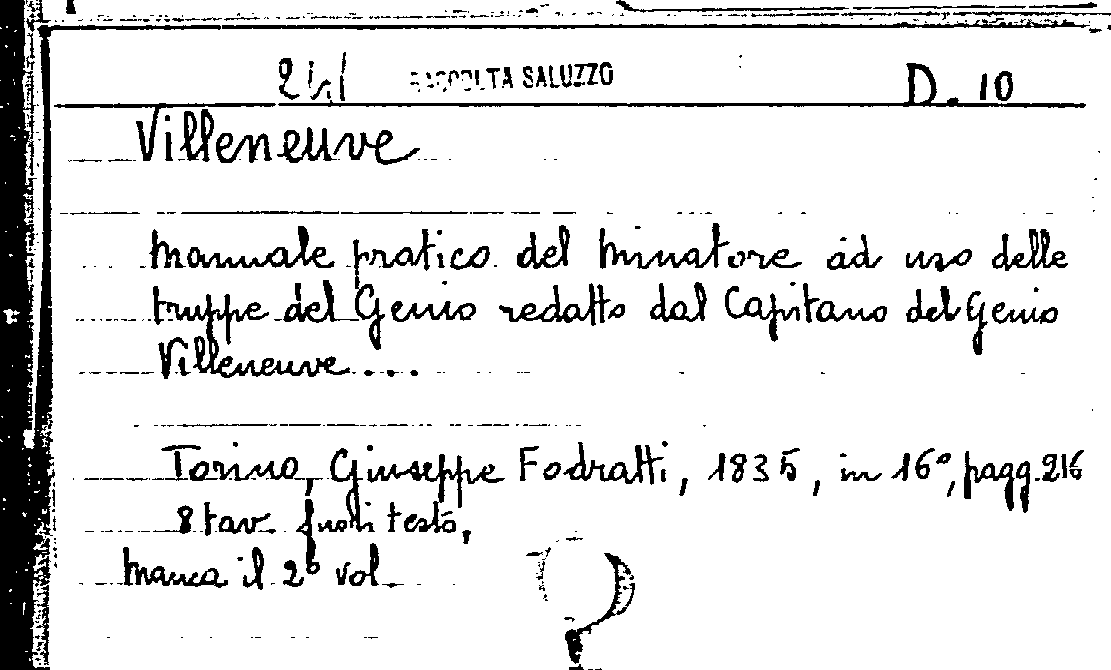 RACCOLTA SALUZZO D. 10
Villeneuve
Manuale pratico del Minatore ad uso delle
truppe del Genio redatto dal Capitano del Genio
Villeneuve...
Torino, Giuseppe Fodratti, 1835, in 16°, pagg. 216
8 tav. fuori testo,
Manca il 2° vol.